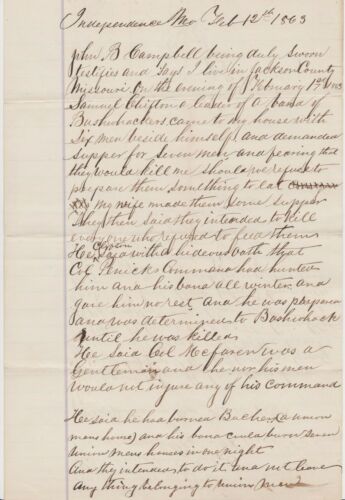 Independence Mo Feb 12th 1863
John B Campbell being duly sworn
testifies and says I live in Jackson County
Missouri On the evening of February 1st 1863
Samuel Clifton a leader of a band of
Bushwhackers came to my house with
Six men beside himself and demanded
supper for seven men and fearing that
they would kill me should we refuse to
prepare them something to eat
my wife made them some supper
They then said they intended to kill
every one who refused to feed them
He Clifton said with a hideous oath that
Col Penicks Command had hunted
him and his band all winter and
gave him no rest and he was
and was determined to Bushwhack
until he was killed
He said Col McFarren was a
Gentleman and he nor his men
would not injure any of his command
He said he had burned Bucher (a union
mans home) and his band could burn seven
Union mens homes in one night
And they intended to do it and not leave
any thing belonging to Union men